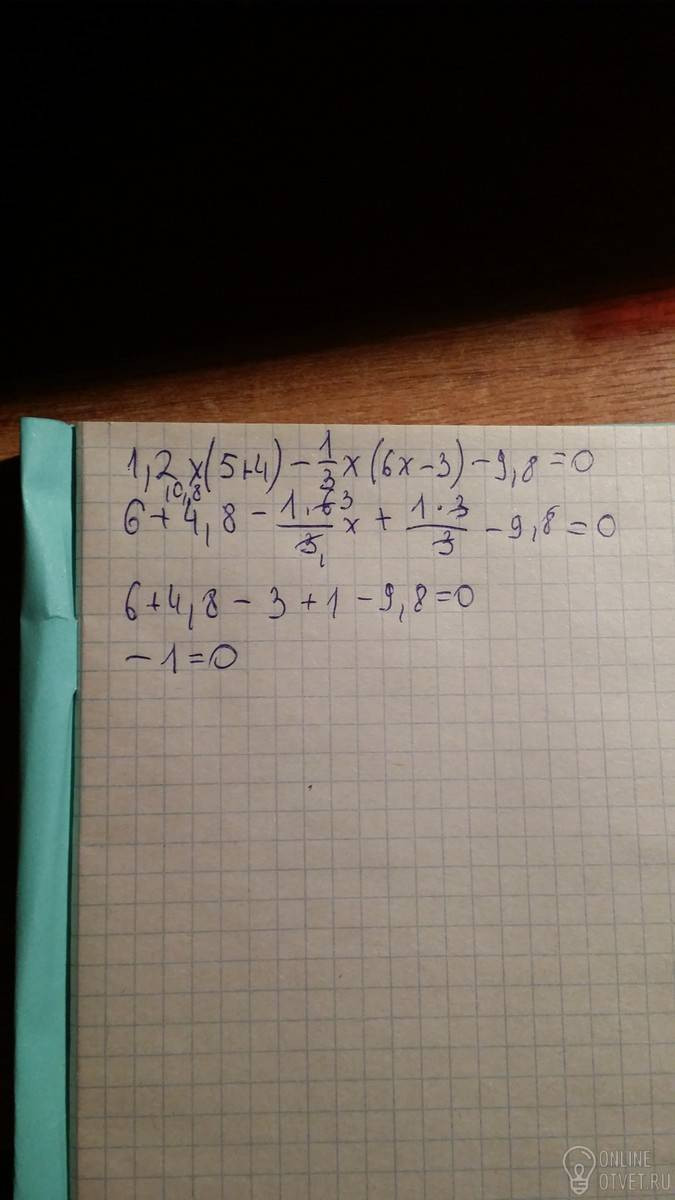 1,2 x(5+4) - 1/3 x (6x-3) - 9,8 = 0
10,8
6 + 4,8 - 1·6 3/3 1 x + 1·3/3 - 9,8 = 0
6 + 4,8 - 3 + 1 - 9,8 = 0
- 1 = 0
ONLINE
OTVET.RU